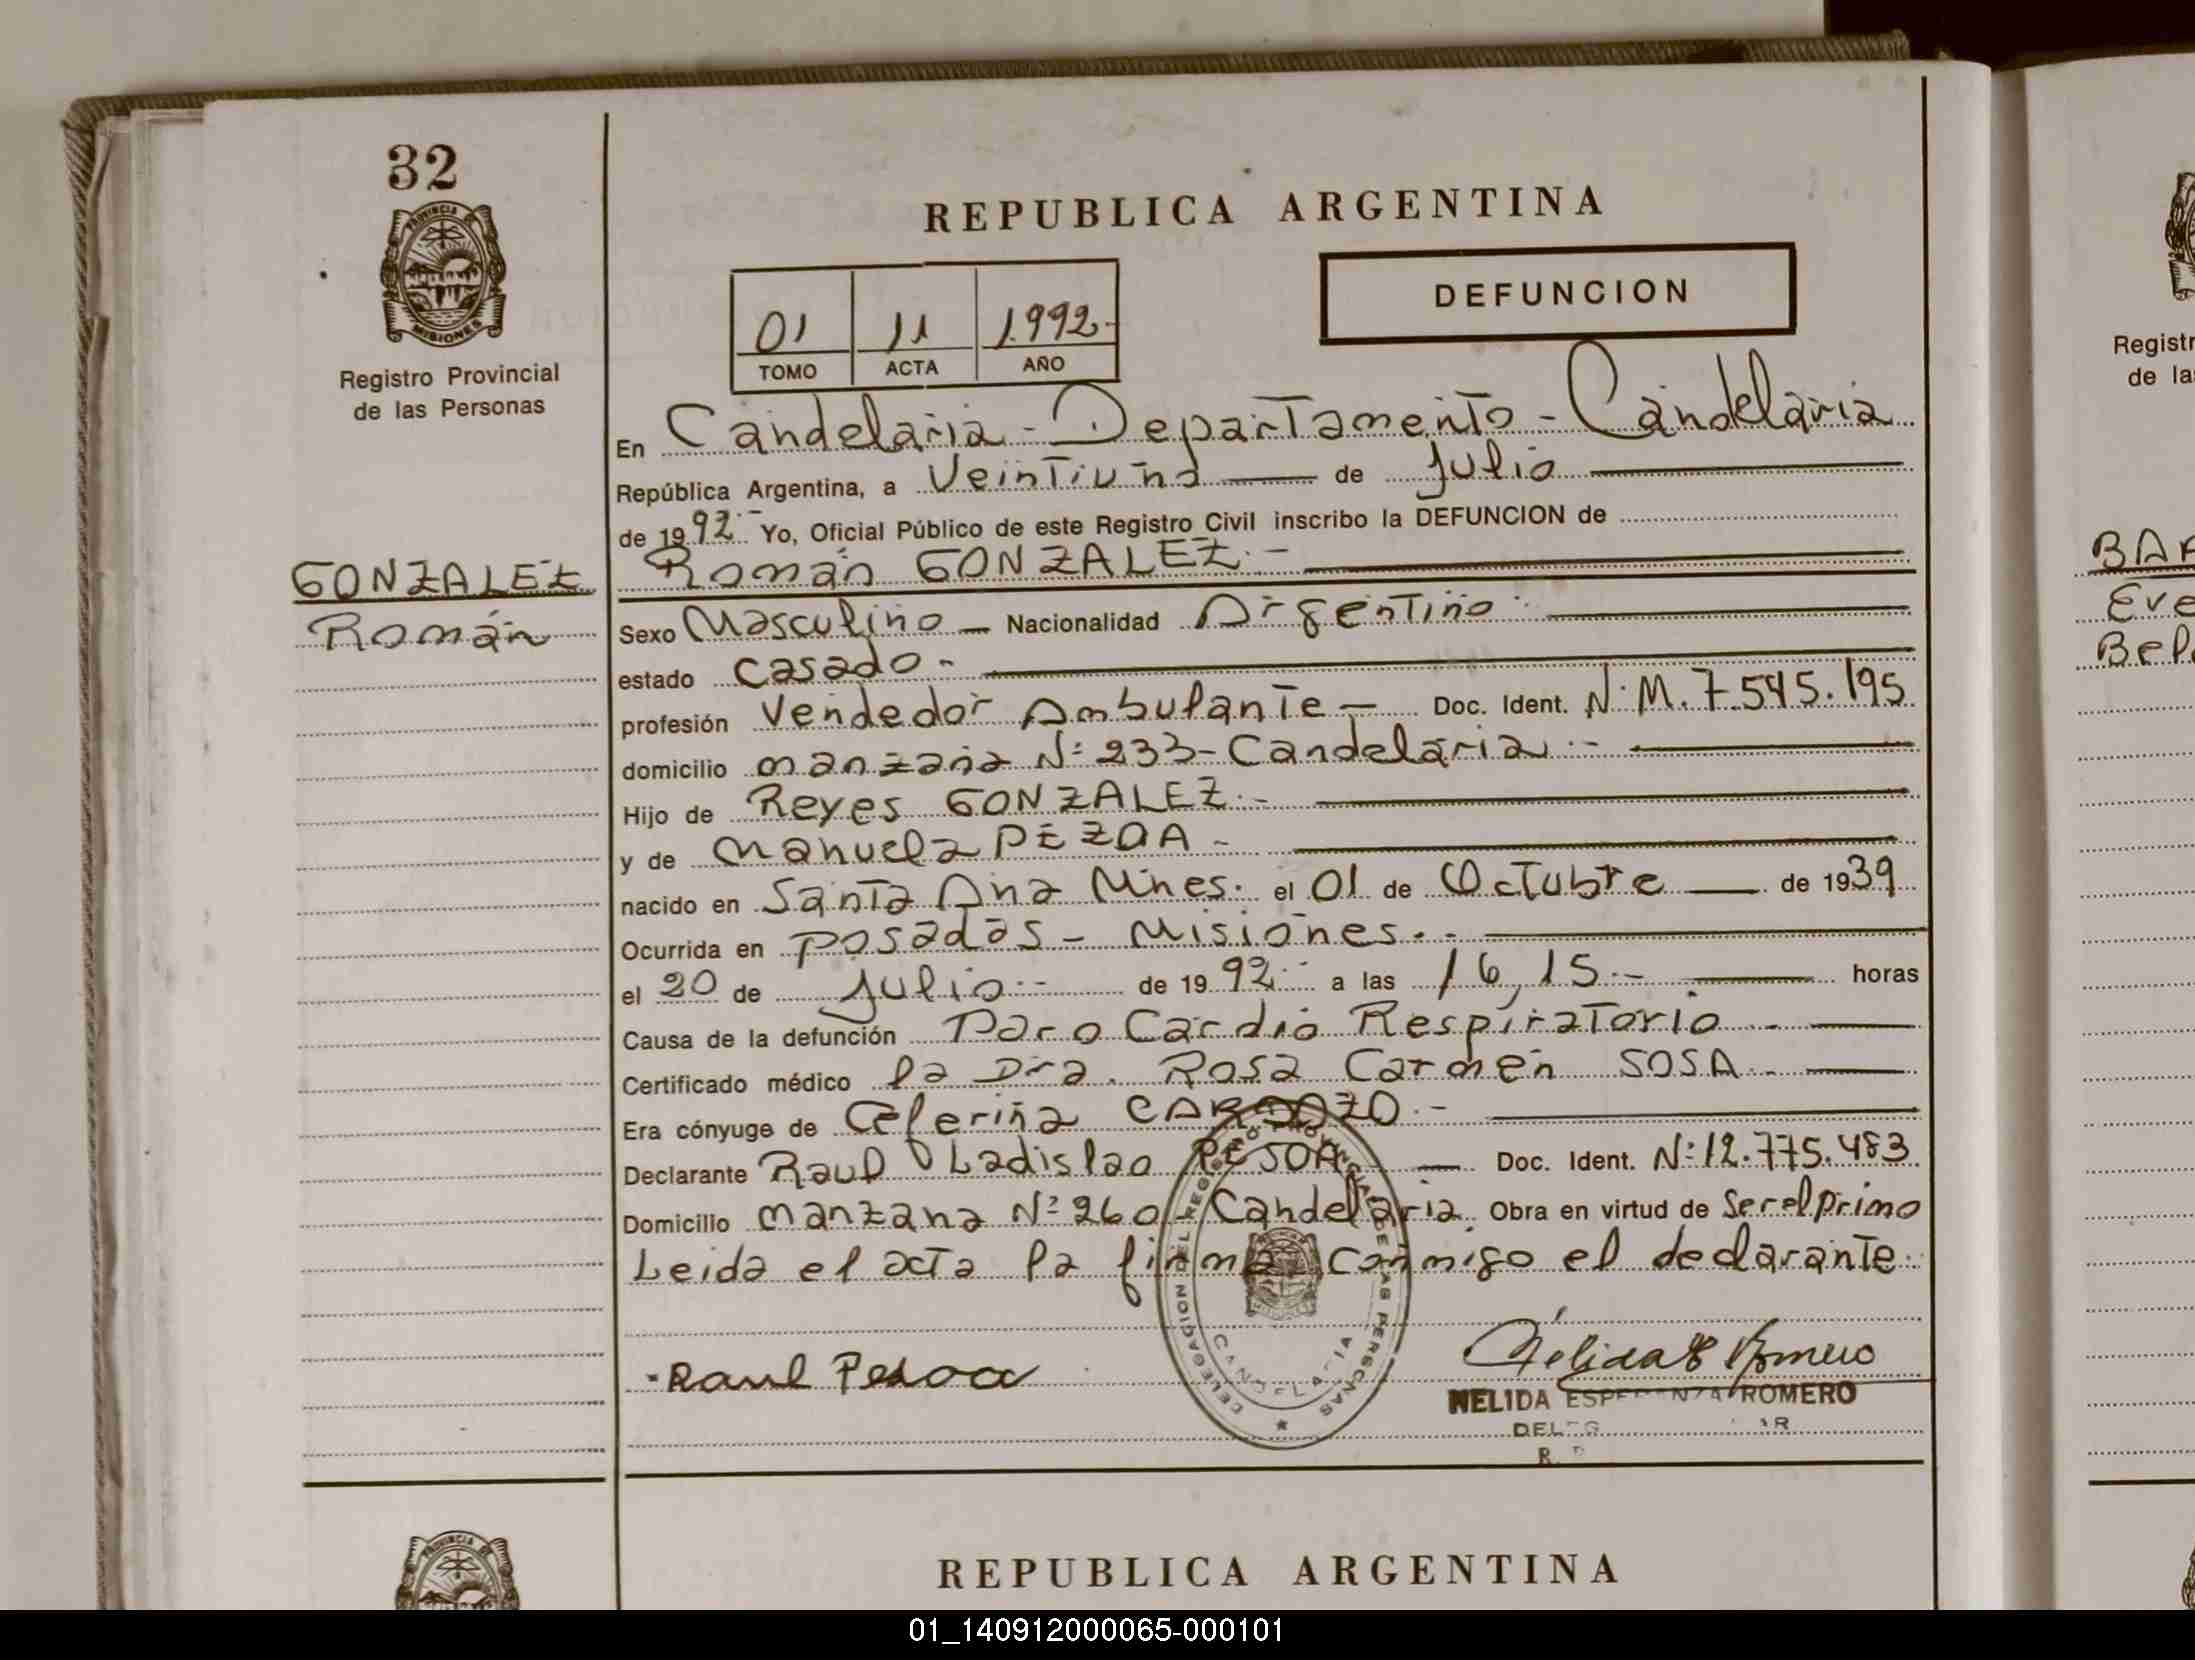 32
PROVINCIA DE
MISIONES
Registro Provincial
de las Personas
GONZALEZ
Román
REPUBLICA ARGENTINA
DEFUNCION
01 11 1.992.-
TOMO ACTA AÑO
En Candelaria - Departamento - Candelaria
República Argentina, a Veintiuno de Julio
de 1992.- Yo, Oficial Público de este Registro Civil inscribo la DEFUNCION de
Román GONZALEZ.-
Sexo Masculino - Nacionalidad Argentino.
estado Casado.-
profesión Vendedor Ambulante - Doc. Ident. N: M. 7.545.195
domicilio manzana N: 233 - Candelaria.-
Hijo de Reyes GONZALEZ.-
y de Manuela PEZOA -
nacido en Santa Ana Mnes. el 01 de Octubre de 1939
Ocurrida en Posadas - Misiones.-
el 20 de Julio.- de 1992.- a las 16,15.- horas
Causa de la defunción Paro Cardio Respiratorio.-
Certificado médico la Dra. Rosa Carmen SOSA.-
Era cónyuge de Ceferina CARDOZO.-
Declarante Raul Ladislao PESOA - Doc. Ident. N: 12.775.483
Domicilio manzana N: 260 - Candelaria. Obra en virtud de Ser el primo
Leida el acta la firma conmigo el declarante.
DELEGACION DEL REGISTRO PROVINCIAL DE LAS PERSONAS
CANDELARIA
Raul Pesoa
Nélida E Romero
NELIDA ESPERANZA ROMERO
REPUBLICA ARGENTINA
PROVINCIA DE
Registr
de la
BAR
Eve
Bel
01_140912000065-000101